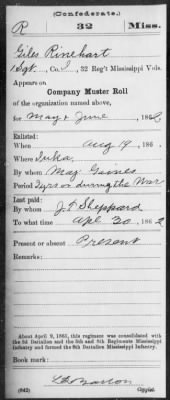 (Confederate.)
R 32 Miss.
Giles Rinehart
1 Sgt., Co. I, 32 Reg't Mississippi Vols.
Appears on
Company Muster Roll
of the organization named above,
for May & June, 1862
Enlisted:
When Aug 19, 186 .
Where Iuka,
By whom Maj. Gaines
Period 2 yrs or during the War
Last paid:
By whom J. F. Sheppard
To what time Apl 30, 1862
Present or absent Present
Remarks:
About April 9, 1865, this regiment was consolidated with
the 5th and 8th Regiments Mississippi
Infantry and formed the 8th Battalion Mississippi Infantry.
Book mark:
(642) Copyist.